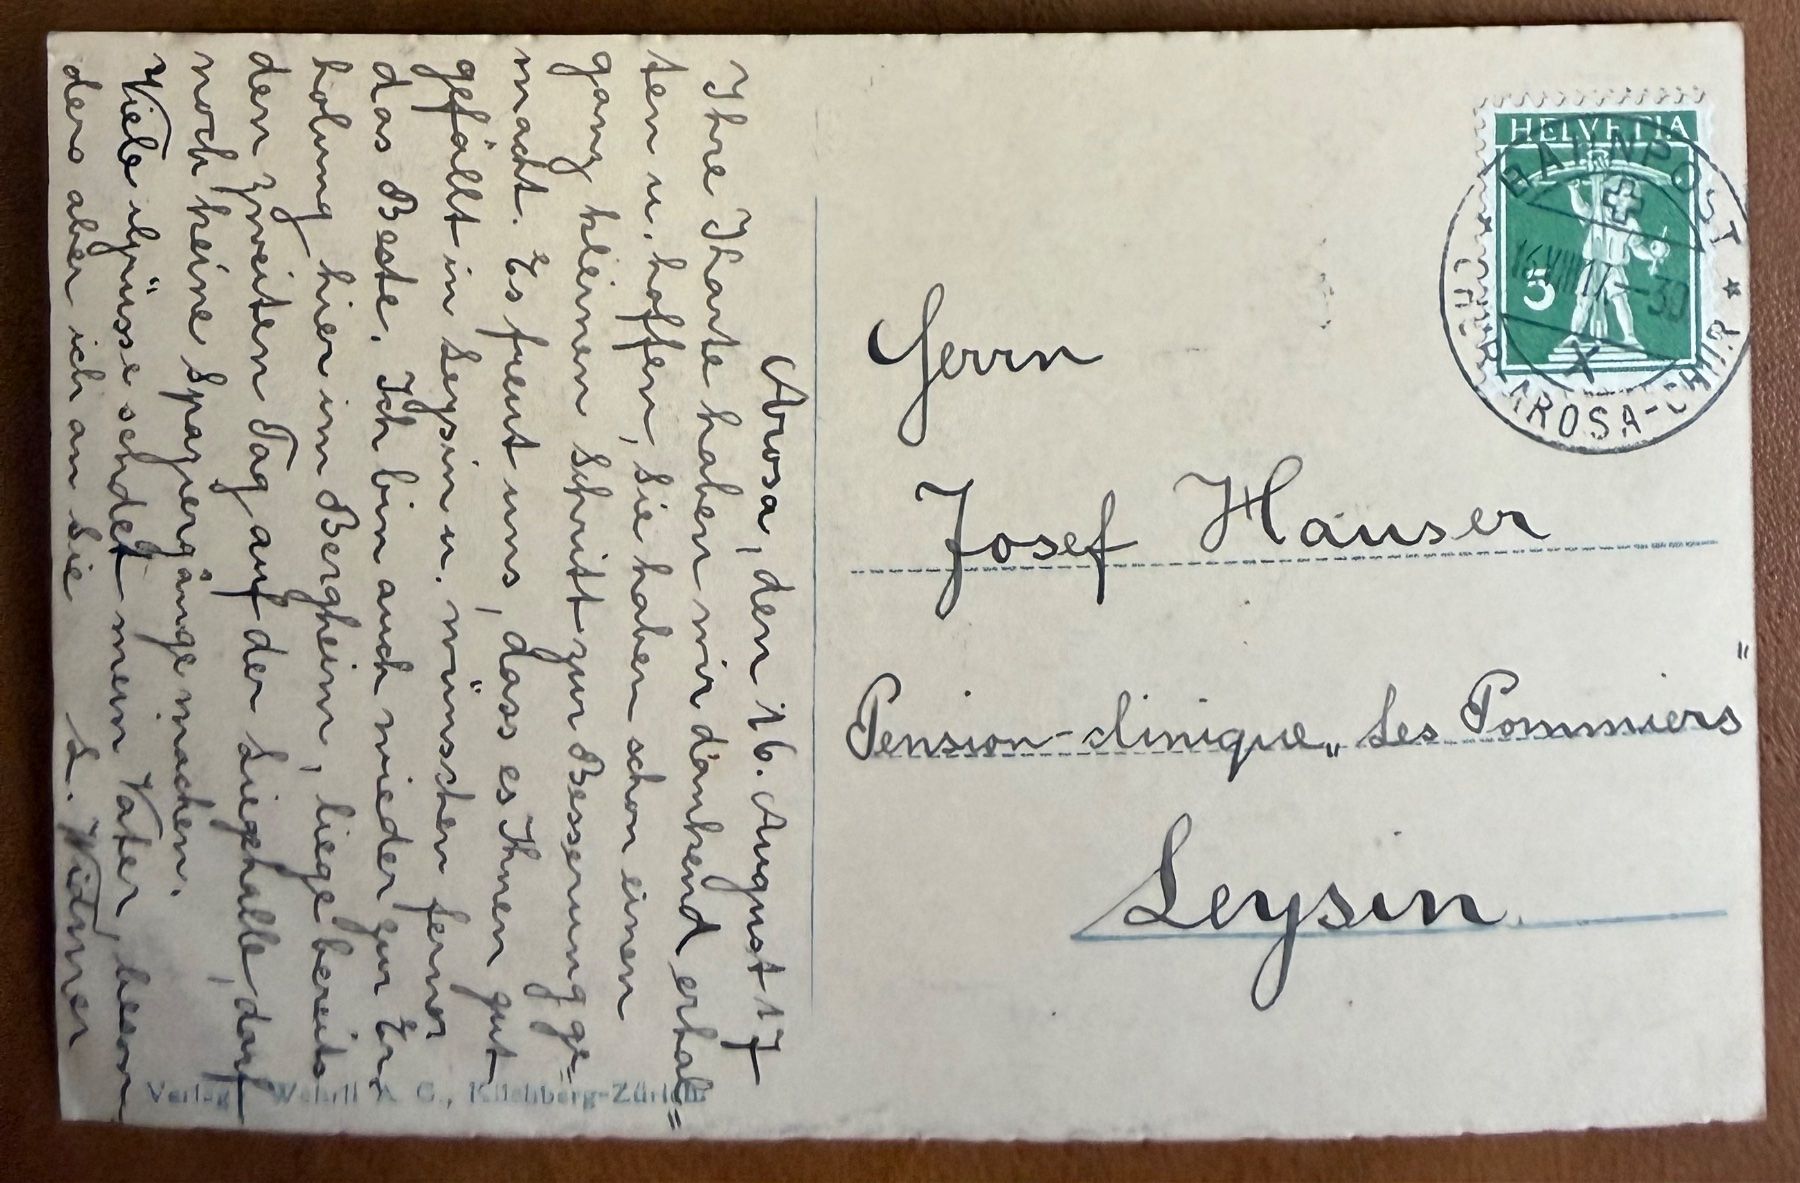 Arosa, den 16. August 17
Ihre Tharte haben wir dankend erhal=
ten u. hoffen, Sie haben schon einen
ganz kleinen Schritt zur Besserung ge=
macht. Es freut uns, dass es Ihnen gut
gefällt in Leysin u. wünschen ferner
das Beste. Ich bin auch wieder zur Er=
holung hier im Bergheim, liege bereits
den zweiten Tag auf der Liegehalle, darf
noch keine Spaziergänge machen.
Viele Grüsse sendet mein Vater, beson
ders aber ich an Sie L. Widmer
Verlag Wehrli A. G., Kilchberg-Zürich
HELVETIA
5
BAHNPOST
16.VIII.17.-30
X
CHUR-AROSA-CHUR
Herrn
Josef Hauser
Pension-clinique „Les Pommiers"
Leysin.